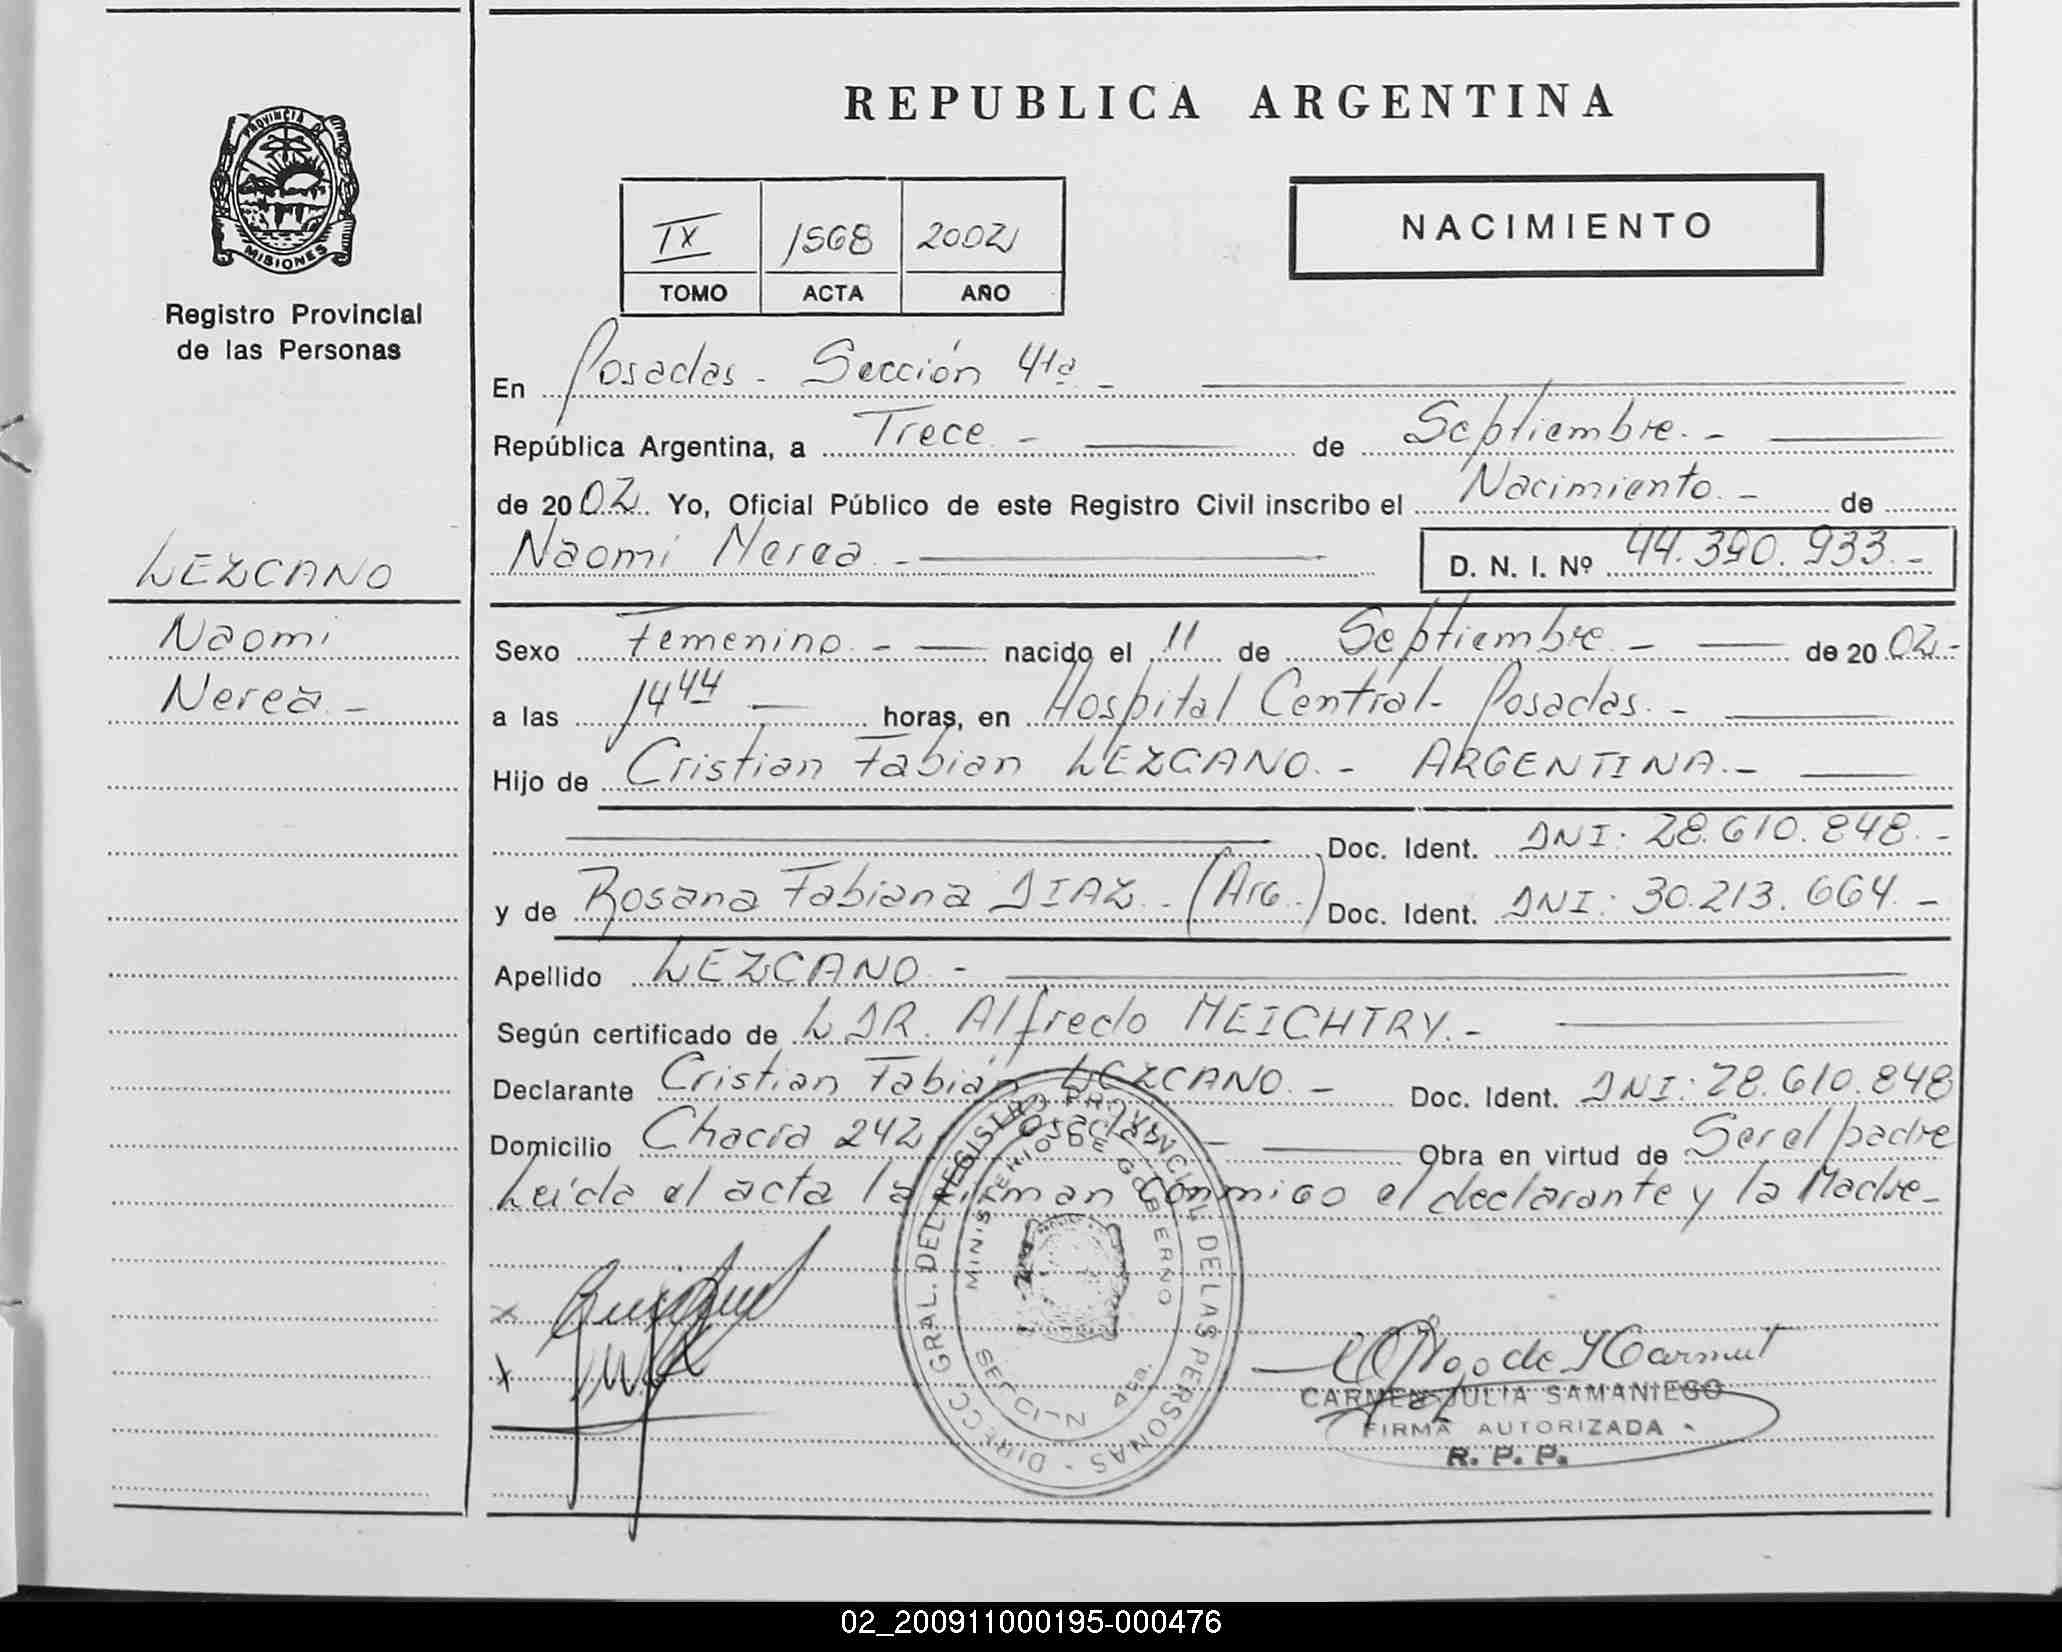 REPUBLICA ARGENTINA
PROVINCIA DE
MISIONES
Registro Provincial
de las Personas
IX 1568 2002
TOMO ACTA AÑO
NACIMIENTO
En Posadas - Sección 4ta -
República Argentina, a Trece - de Septiembre. -
de 2002. Yo, Oficial Público de este Registro Civil inscribo el Nacimiento. - de
Naomi Nerea. - D. N. I. Nº 44.390.933. -
LEZCANO
Naomi
Nerea. -
Sexo Femenino. - nacido el 11 de Septiembre. - de 2002. -
a las 14 44 horas, en Hospital Central - Posadas. -
Hijo de Cristian Fabian LEZCANO. - ARGENTINA. -
Doc. Ident. DNI: 28.610.848. -
y de Rosana Fabiana DIAZ. - (Arg.) Doc. Ident. DNI: 30.213.664. -
Apellido LEZCANO. -
Según certificado de L DR. Alfredo MEICHTRY. -
Declarante Cristian Fabián LEZCANO. - Doc. Ident. DNI: 28.610.848
Domicilio Chacra 242, Posadas. - Obra en virtud de Ser el padre
Leída el acta la firman conmigo el declarante y la Madre -
DIRECC. GRAL. DEL REGISTRO PROVINCIAL DE LAS PERSONAS -
MINISTERIO DE GOBIERNO
SECCION 4ta.
x
x
CARMEN JULIA SAMANIEGO
FIRMA AUTORIZADA
R. P. P.
02_200911000195-000476